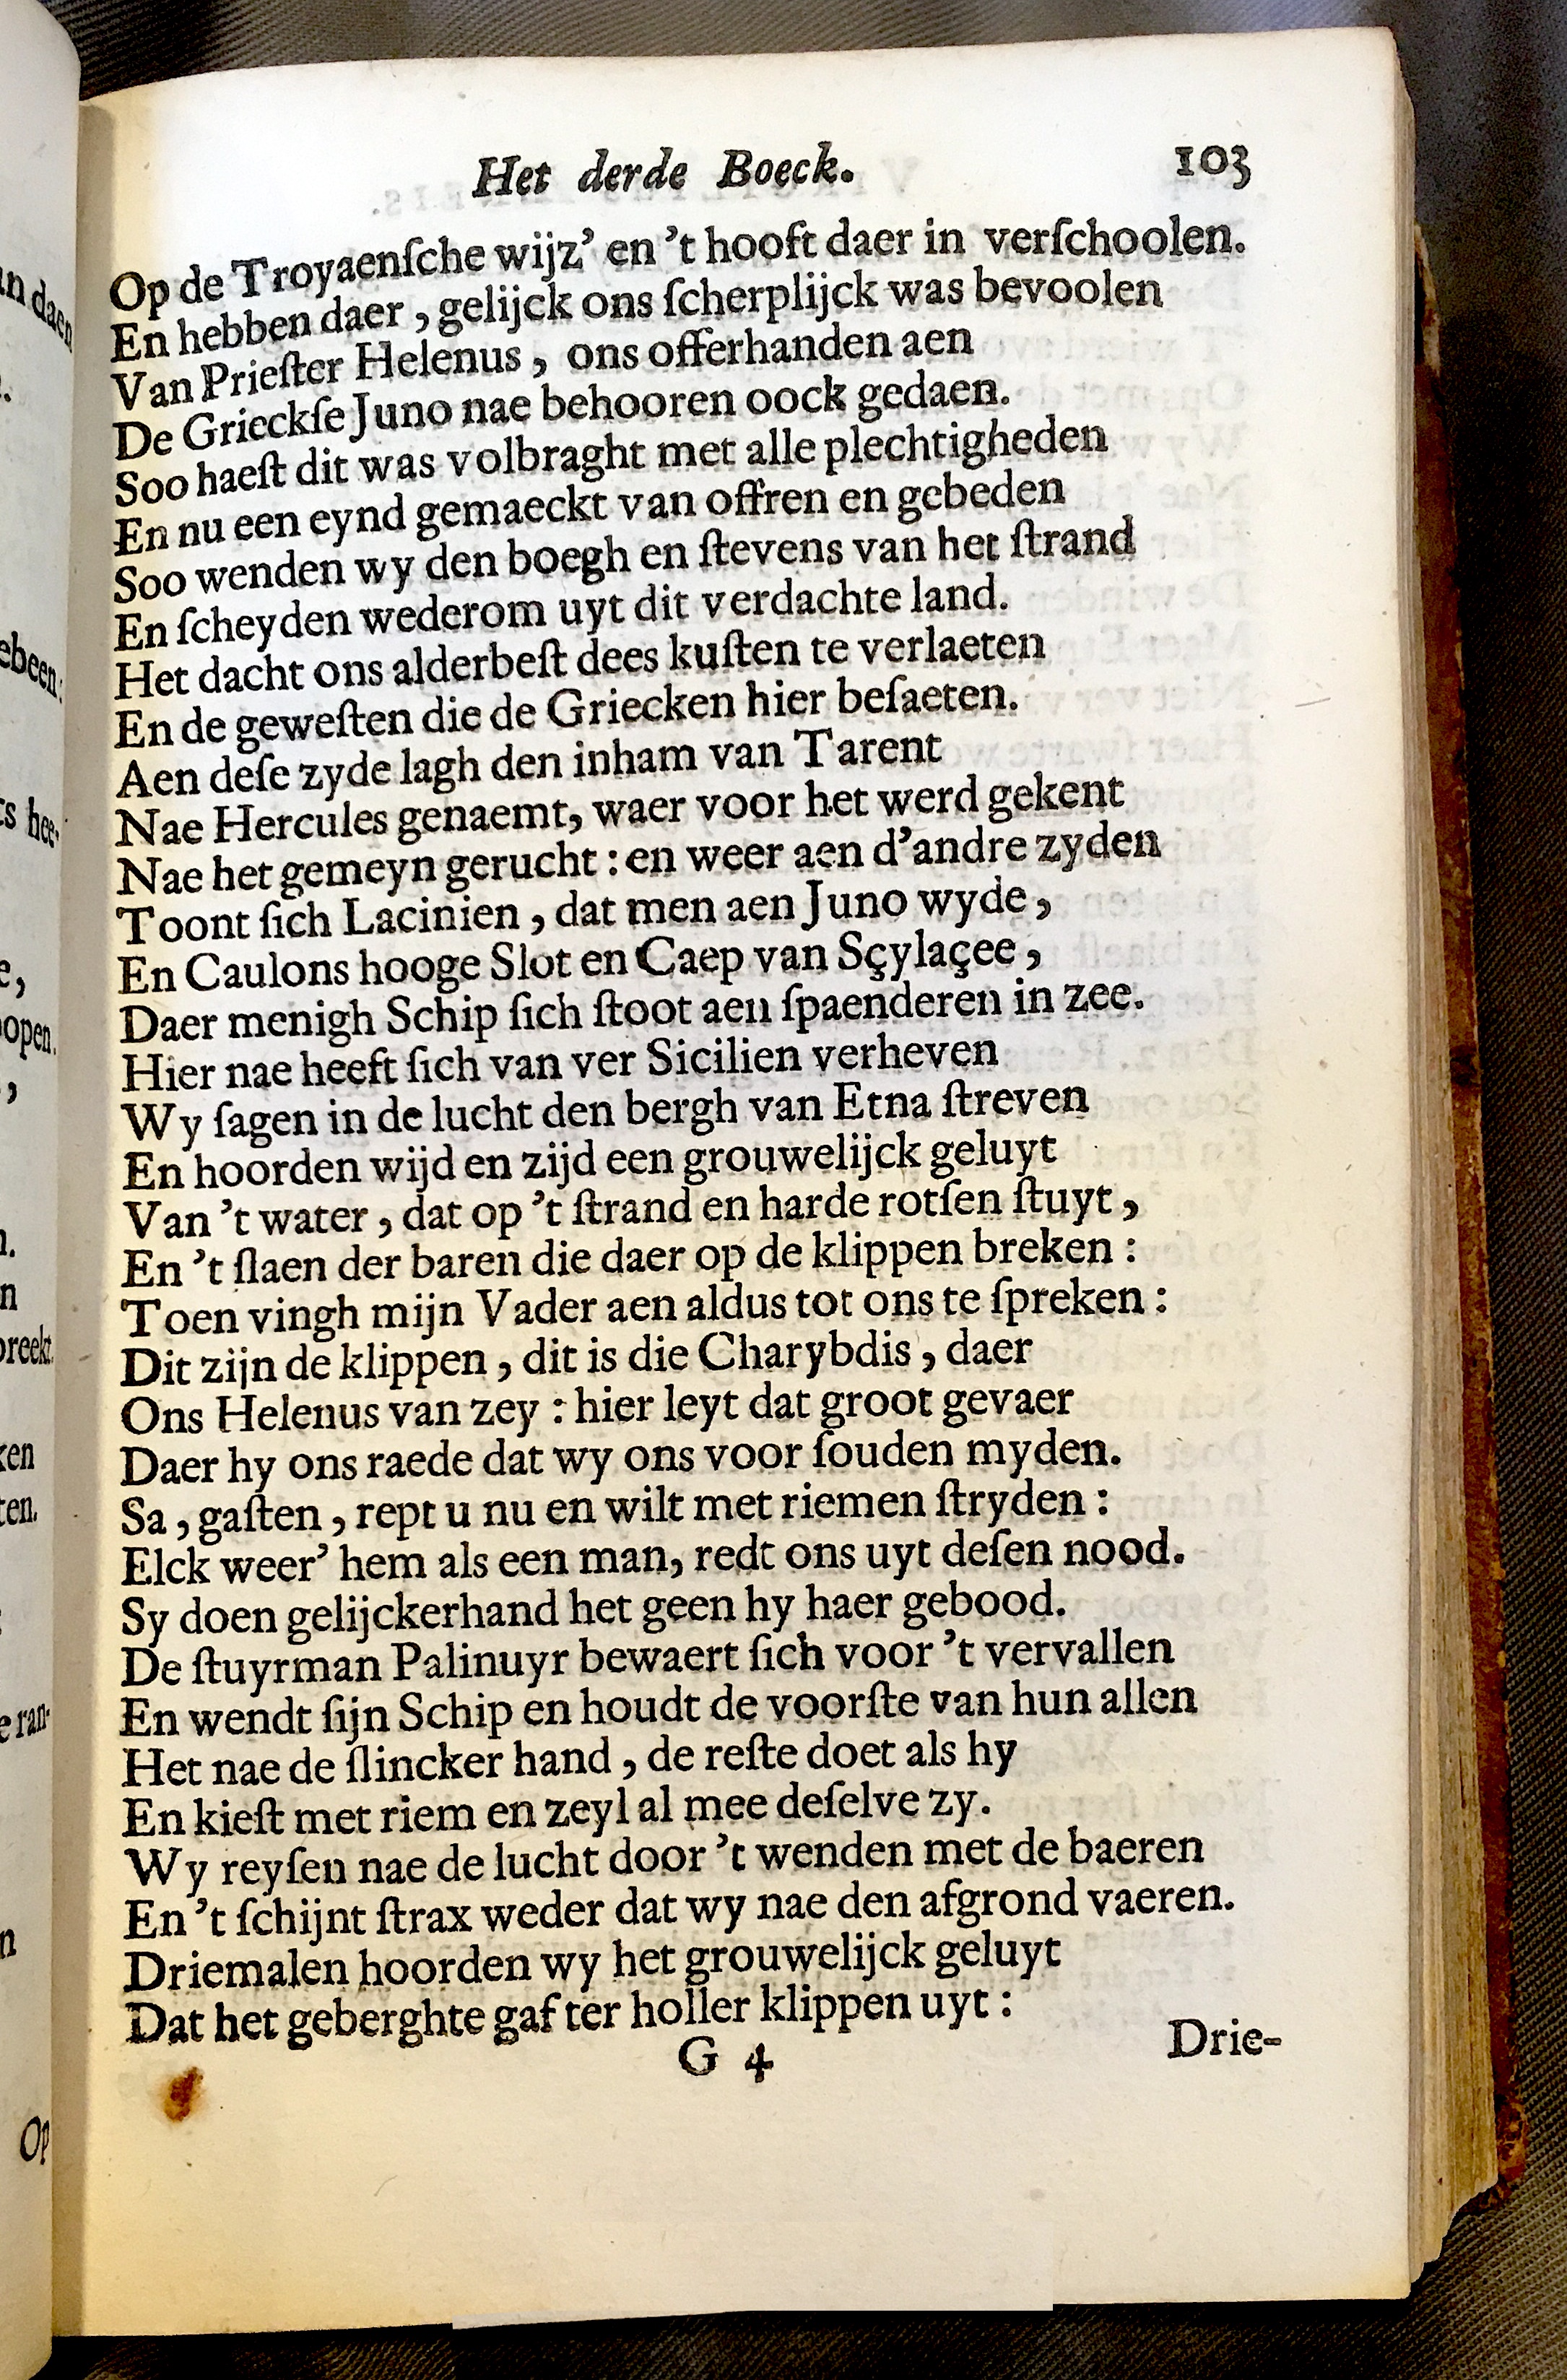 Het derde Boeck. 103
Op de Troyaenſche wijz’ en ’t hooft daer in verſchoolen.
En hebben daer, gelijck ons ſcherplijck was bevoolen
Van Prieſter Helenus, ons offerhanden aen
De Grieckſe Juno nae behooren oock gedaen.
Soo haeſt dit was volbraght met alle plechtigheden
En nu een eynd gemaeckt van offren en gebeden
Soo wenden wy den boegh en ſtevens van het ſtrand
En ſcheyden wederom uyt dit verdachte land.
Het dacht ons alderbeſt dees kuſten te verlaeten
En de geweſten die de Griecken hier beſaeten.
Aen deſe zyde lagh den inham van Tarent
Nae Hercules genaemt, waer voor het werd gekent
Nae het gemeyn gerucht: en weer aen d’andre zyden
Toont ſich Lacinien, dat men aen Juno wyde,
En Caulons hooge Slot en Caep van Sçylaçee,
Daer menigh Schip ſich ſtoot aen ſpaenderen in zee.
Hier nae heeft ſich van ver Sicilien verheven
Wy ſagen in de lucht den bergh van Etna ſtreven
En hoorden wijd en zijd een grouwelijck geluyt
Van ’t water, dat op ’t ſtrand en harde rotſen ſtuyt,
En ’t ſlaen der baren die daer op de klippen breken:
Toen vingh mijn Vader aen aldus tot ons te ſpreken:
Dit zijn de klippen, dit is die Charybdis, daer
Ons Helenus van zey: hier leyt dat groot gevaer
Daer hy ons raede dat wy ons voor ſouden myden.
Sa, gaſten, rept u nu en wilt met riemen ſtryden:
Elck weer’ hem als een man, redt ons uyt deſen nood.
Sy doen gelijckerhand het geen hy haer gebood.
De ſtuyrman Palinuyr bewaert ſich voor ’t vervallen
En wendt ſijn Schip en houdt de voorſte van hun allen
Het nae de ſlincker hand, de reſte doet als hy
En kieſt met riem en zeyl al mee deſelve zy.
Wy reyſen nae de lucht door ’t wenden met de baeren
En ’t ſchijnt ſtrax weder dat wy nae den afgrond vaeren.
Driemalen hoorden wy het grouwelijck geluyt
Dat het geberghte gaf ter holler klippen uyt:
G 4 Drie-